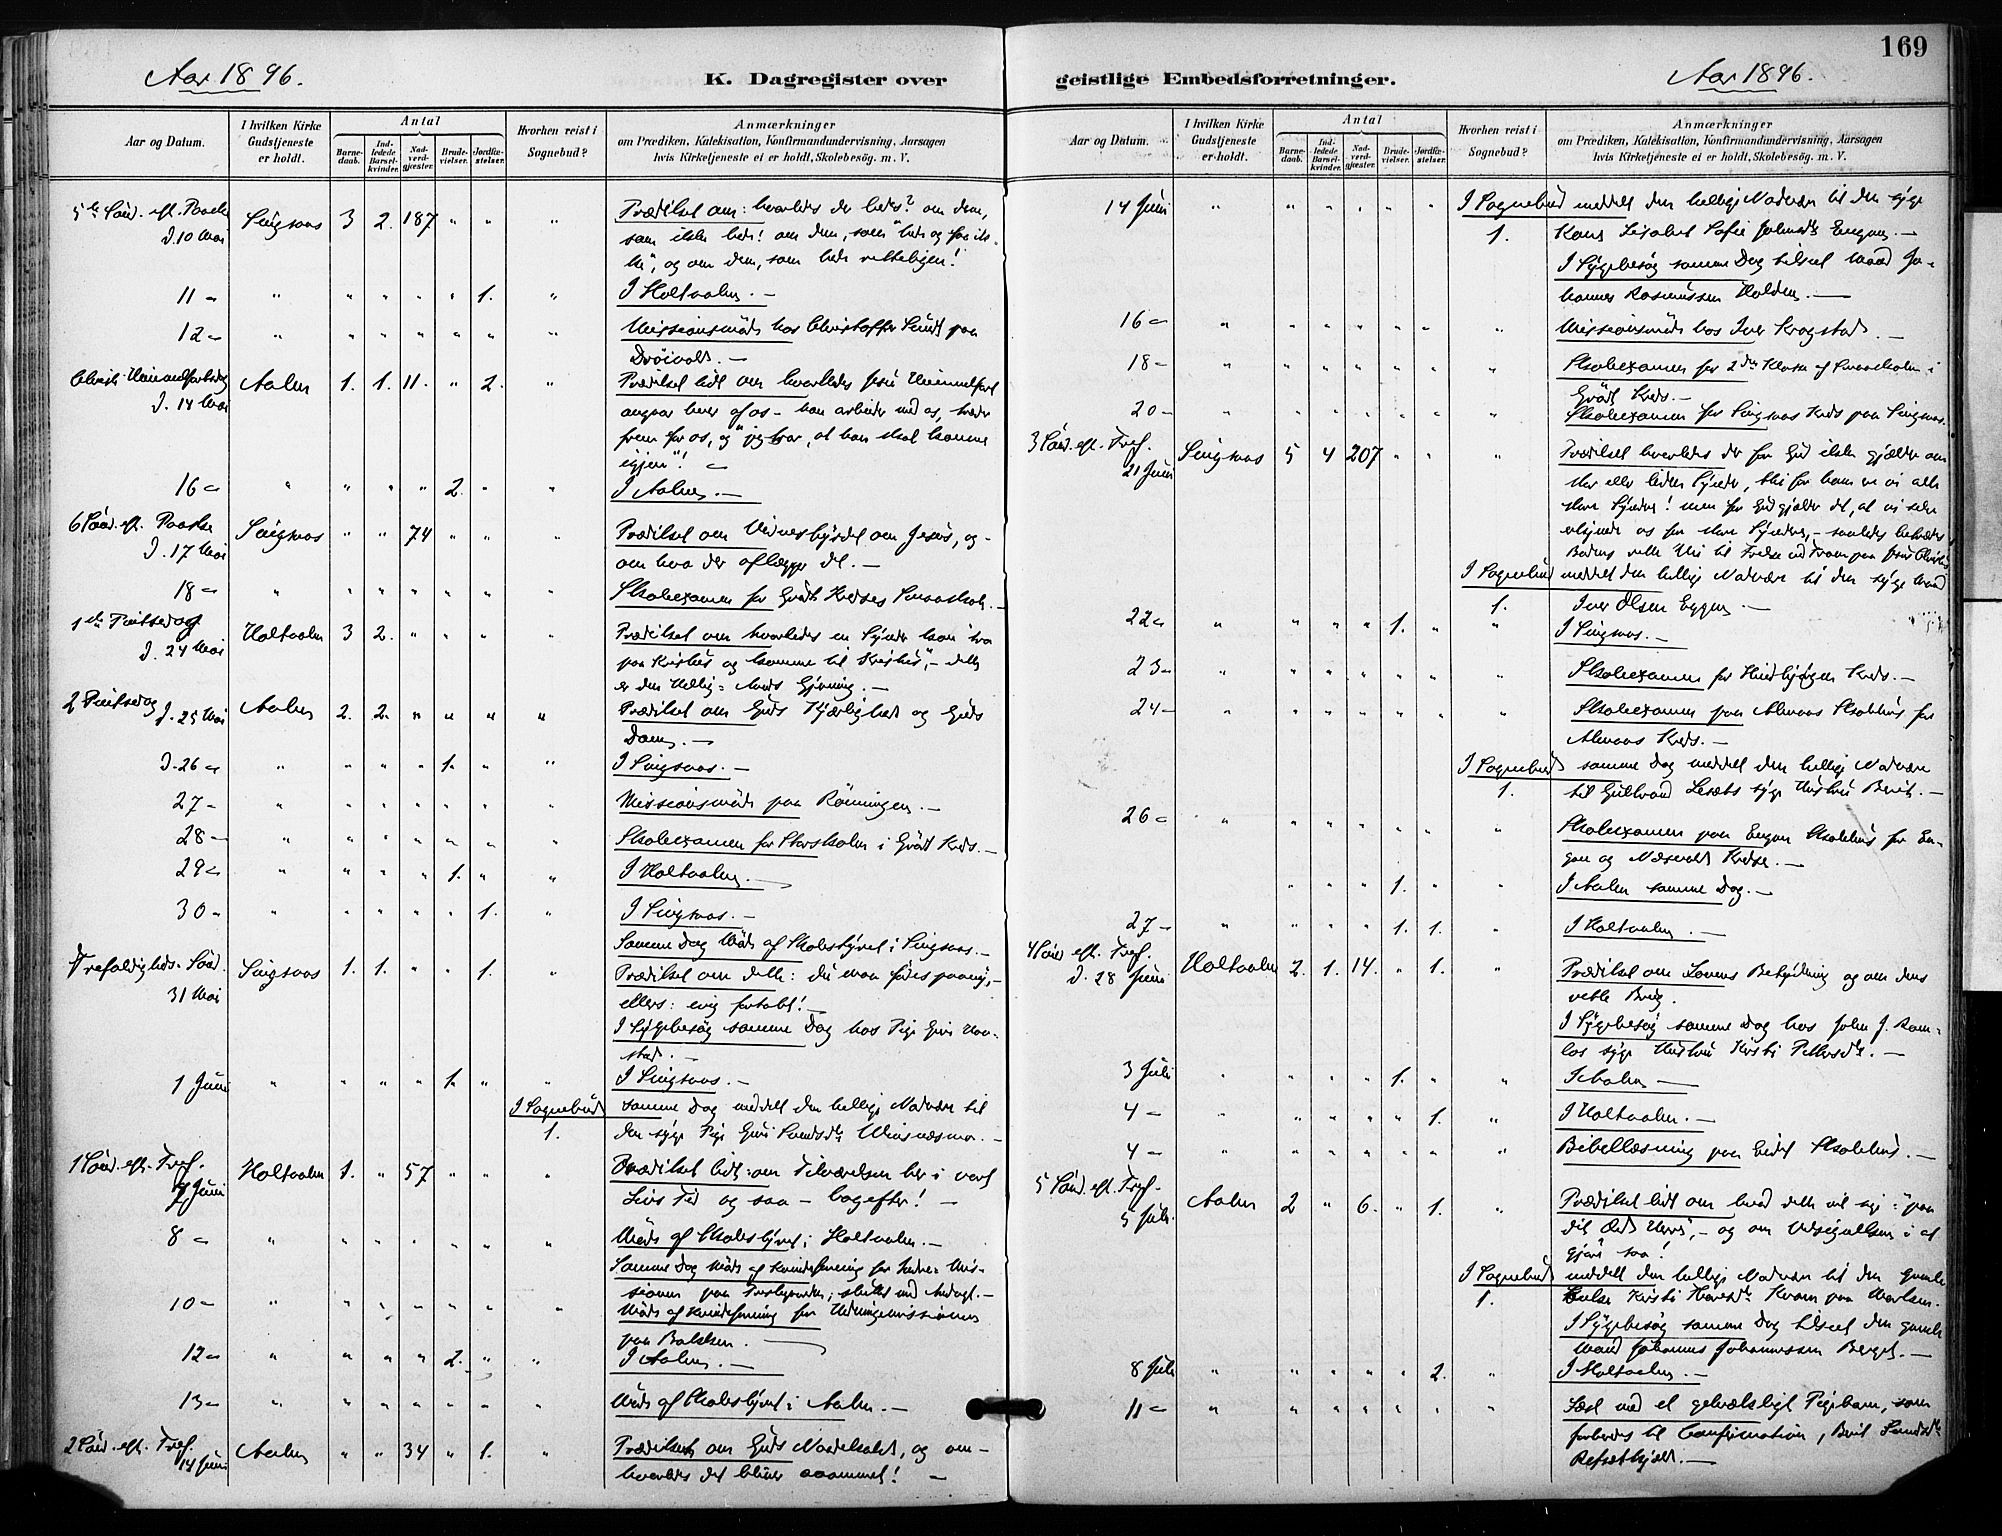 169
Aar 1896.
K. Dagregister over
geistlige Embedsforretninger.
Aar 1896.
Aar og Datum.
I hvilken Kirke Gudstjeneste er holdt.
Antal
Barnedaab.
Indledede Barselkvinder.
Nadverdgjæster.
Brudevielser.
Jordfæstelser.
Hvorhen reist i Sognebud?
Anmærkninger
om Prædiken, Katekisation, Konfirmandundervisning, Aarsagen
hvis Kirketjeneste ei er holdt, Skolebesøg. m. V.
5te Sønd. eft. Paaske Singsaas 3 2. 187 " " " Prædiket om: hvorledes der bedes? om dem,
d. 10 Mai som ikke bede! om dem, som "bede og faa ik-
ke", og om dem, som bede rettelegen!
11 " " " " " " 1. " I Holtaalen. -
12 " " " " " " " " Missionsmøde hos Christoffer Sundt paa
Drøivold. -
Christi Himmelfartsdag Aalen 1. 1. 11. " 2. " Prædiket lidt om hvorledes Jesu Himmelfart
d. 14 Mai angaar hver af os - han arbeider med os, træder
frem for os, og "jeg tror, at han skal komme
igjen"! -
16 " " " " " 2. " " I Aalen. -
6 Sønd. eft. Paaske Singsaas " " 74 " " " Prædiket om Vidnesbyrdet om Jesus, og -
d. 17 Mai om hva der aflægge det. -
18 " " " " " " " " Skoleexamen for Grødt Kredses Smaaskole. -
1ste Pintsedag Holtaalen 3 2. " " " " Prædiket om hvorledes en Synder kan tro
d. 24 Mai paa Kristus og komme til Kristus", - dette
er den Hellig-Aands Gjerning. -
2 Pintsedag d. 25 Mai Aalen 2. 2. " " " " Prædiket om Guds Kjærlighed og Guds
Dom. -
d. 26 " " " " " 1. " " I Singsaas. -
27 " " " " " " " " Missionsmøde paa Rønningen. -
28 " " " " " " " " Skoleexamen for Storskolen i Grødt Kreds. -
29 " " " " " 1. " " I Holtaalen. -
30 " " " " " " 1. " I Singsaas. -
Samme Dag Møde af Skolestyret i Singsaas. -
Trefoldigheds-Sønd. Singsaas 1. 1. " " 1. " Prædiket om dette: du maa fødes paany, -
31 Mai ellers: evig fortabt! -
I Sygebesøg samme Dag hos Pige Guri Hov-
stad. -
1 Juni " " " " 1. " " I Singsaas. -
I Sognebud samme Dag meddelt den hellige Nadvere til
1. den syge Pige Guri Svendsdt. Winsnesmo. -
1 Sønd. eft. Tref. Holtaalen 1. " 57 " " " Prædiket lidt om Tilværelsen her i vort
7 Juni Livs Tid og saa - bagefter! -
8 " " " " " " " " Møde af Skolestyret i Holtaalen. -
Samme Dag Møde af Kvindeforening for Indre-Mis-
sionen paa Prestegaarden; sluttet med Andagt. -
10 " " " " " " " " Møde af Kvindeforening for Hedningemissionen
paa Bakken. -
12 " " " " " 2. " " I Aalen. -
13 " " " " " " " " Møde af Skolestyret i Aalen. -
2 Sønd. eft. Tref. Aalen " " 34 " 1. " Prædiket om Guds Naadekald, og om -
14 Juni hvorledes det bliver annammet! -
Aar og Datum.
I hvilken Kirke Gudstjeneste er holdt.
Antal
Barnedaab.
Indledede Barselkvinder.
Nadverdgjæster.
Brudevielser.
Jordfæstelser.
Hvorhen reist i Sognebud?
Anmærkninger
om Prædiken, Katekisation, Konfirmandundervisning, Aarsagen
hvis Kirketjeneste ei er holdt, Skolebesøg. m. V.
14 Juni " " " " " " I Sognebud meddelt den hellige Nadvere til den syge
1. Kone Lisabet Sofie Johnsdt. Engan. -
I Sygebesøg samme Dag tilseet Mand Jo-
hannes Rasmussen Holden. -
16 " " " " " " " " Missionsmøde hos Iver Krogstad. -
18 " " " " " " " " Skoleexamen for 2den Klasse af Smaaskolen i
Grødt Kreds. -
20 " " " " " " " " Skoleexamen for Singsaas Kreds paa Singsaas.
3 Sønd. eft. Tref. Singsaas 5 4 207 " " " Prædiket hvorledes der for Gud ikke gjælder om
21 Juni stor eller liden Synder, thi for ham er vi alle
store Syndere! men for Gud gjælder det, at vi selv
erkjende os for store Syndere, -
I Sognebud meddelt den hellige Nadvere til den syge Mand
1. Iver Olsen Eggen. -
22 " " " " " 1. " " I Singsaas. -
23 " " " " " " " " Skoleexamen for Hindbjørgen Kreds. -
24 " " " " " " " " Skoleexamen paa Almaas Skolehus for
Almaas Kreds. -
I Sognebud samme Dag meddelt den hellige Nadvere
1. til syge Hustru Berit. -
26 " " " " " " " " Skoleexamen paa Engan Skolehus for En-
gan og Næsvold Kredse. -
" " " 1. " " I Aalen samme Dag. -
27 " " " " " 1. 1. " I Holtaalen. -
4 Sønd. eft. Tref. Holtaalen 2. 1. 14. " 1. " Prædiket om Lovens Betydning og om dens
d. 28 Juni rette Brug.
I Sygebesøg samme Dag hos John J. Ram-
los syge Hustru Kirsti Pettersdt. -
3 Juli " " " " 1. " " I Aalen -
4 " " " " " " 1. " I Holtaalen. -
4 " " " " " " " " Bibellæsning paa Eidet Skolehus. -
5 Sønd. eft. Tref. Aalen 2 " 6. " 1. " Prædiket lidt om hvad dette vil sige: "paa
5 Juli. dit Ord Herre", - og om Velsignelsen i at
gjøre saa!
I Sognebud meddelt den hellige Nadvere til den gamle
1. Enke Kirsti Kvam paa
I Sygebesøg samme Dag tilseet den gamle
Mand Johannes Johannessen Berget. -
8 Juli " " " " " 2. " I Holtaalen. -
11 " " " " " " " " Læst med et Pigebarn, som
forberedes til Confirmation, Berit